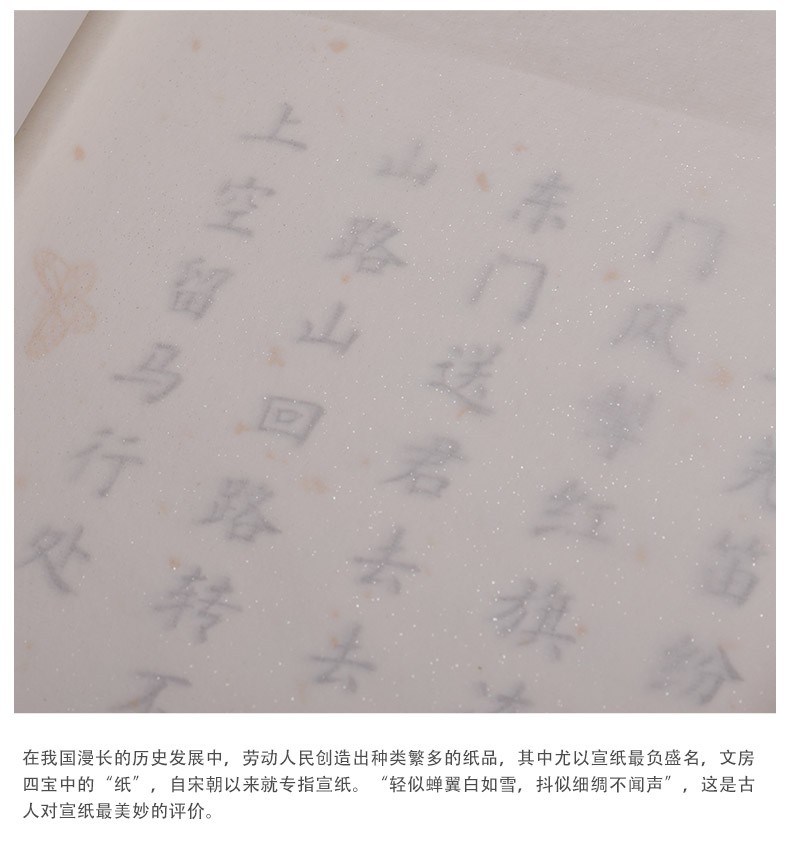 羌笛纷
门风掣红旗
东门送君去去
山路山回路转不
上空留马行处
在我国漫长的历史发展中，劳动人民创造出种类繁多的纸品，其中尤以宣纸最负盛名，文房
四宝中的“纸”，自宋朝以来就专指宣纸。“轻似蝉翼白如雪，抖似细绸不闻声”，这是古
人对宣纸最美妙的评价。